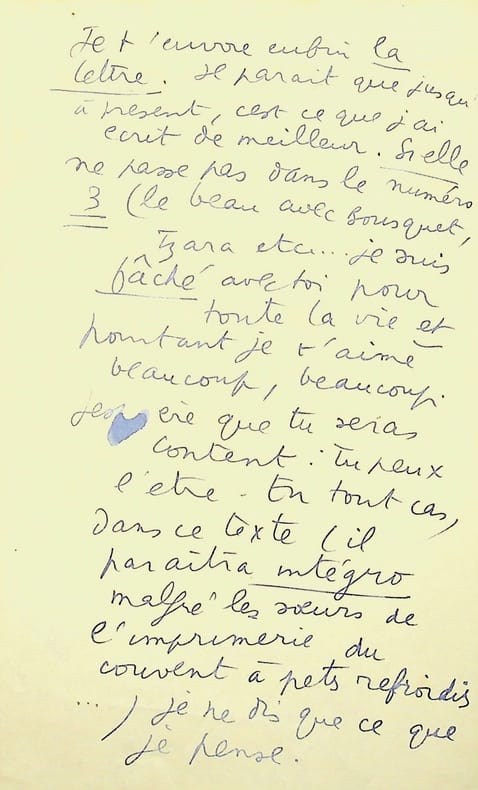 Je t'envoie enfin la
lettre. Il parait que jusqu'
à présent, c'est ce que j'ai
ecrit de meilleur. Si elle
ne passe pas dans le numéro
3 (le beau avec Bousquet,
Tzara etc... je suis
fâché avec toi pour
toute la vie et
pourtant je t'aime
beaucoup, beaucoup.
J'espère que tu seras
content : tu peux
l'etre - En tout cas,
dans ce texte (il
paraitra intégro
malgré les sœurs de
l'imprimerie du
couvent à pets refroidis
...) je ne dis que ce que
je pense.